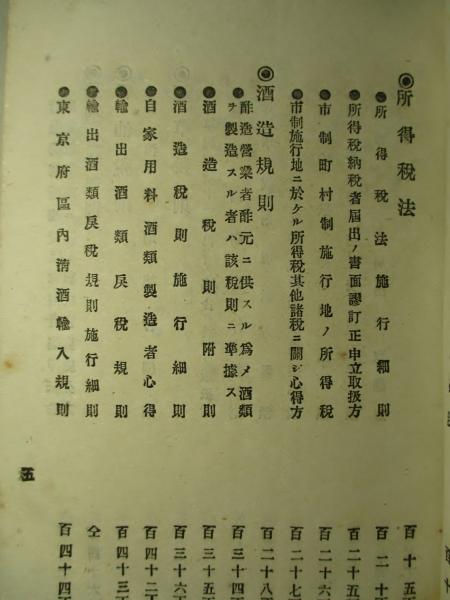 ◉所得税法　百十五
●所得税法施行細則　百二十
●所得税納税者屆出ノ書面謬訂正申立取扱方　百二十五
●市制町村制施行地ノ所得税　百二十六
●市制施行地ニ於ケル所得税其他諸税ニ關シ心得方　百二十七
◉酒造規則　百二十八
●酢造營業者酢元ニ供スル爲メ酒類
ヲ製造スル者ハ該税則ニ準據ス　百三十四
●酒造税則附則　百三十五
●酒造税則施行細則　百三十六
●自家用料酒類製造者心得　百四十二
●輸出酒類戻税規則　百四十三
●輸出酒類戻税規則施行細則　仝
●東京府區内淸酒輸入規則　百四十四
五